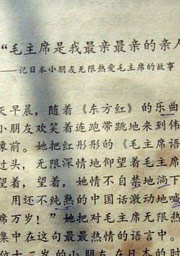 “毛主席是我最亲最亲的亲人
——记日本小朋友无限热爱毛主席的故事
天早晨，随着《东方红》的乐曲
小朋友欢笑着连跑带跳地来到伟
像前。她把红彤彤的《毛主席语
过头，无限深情地仰望着毛主席
望着，望着，她情不自禁地淌下
，用还不纯熟的中国话激动地喊
席万岁！”她把对毛主席无限热
集中在这句最最热情的语言中。
位十二岁的小朋友在日本的时